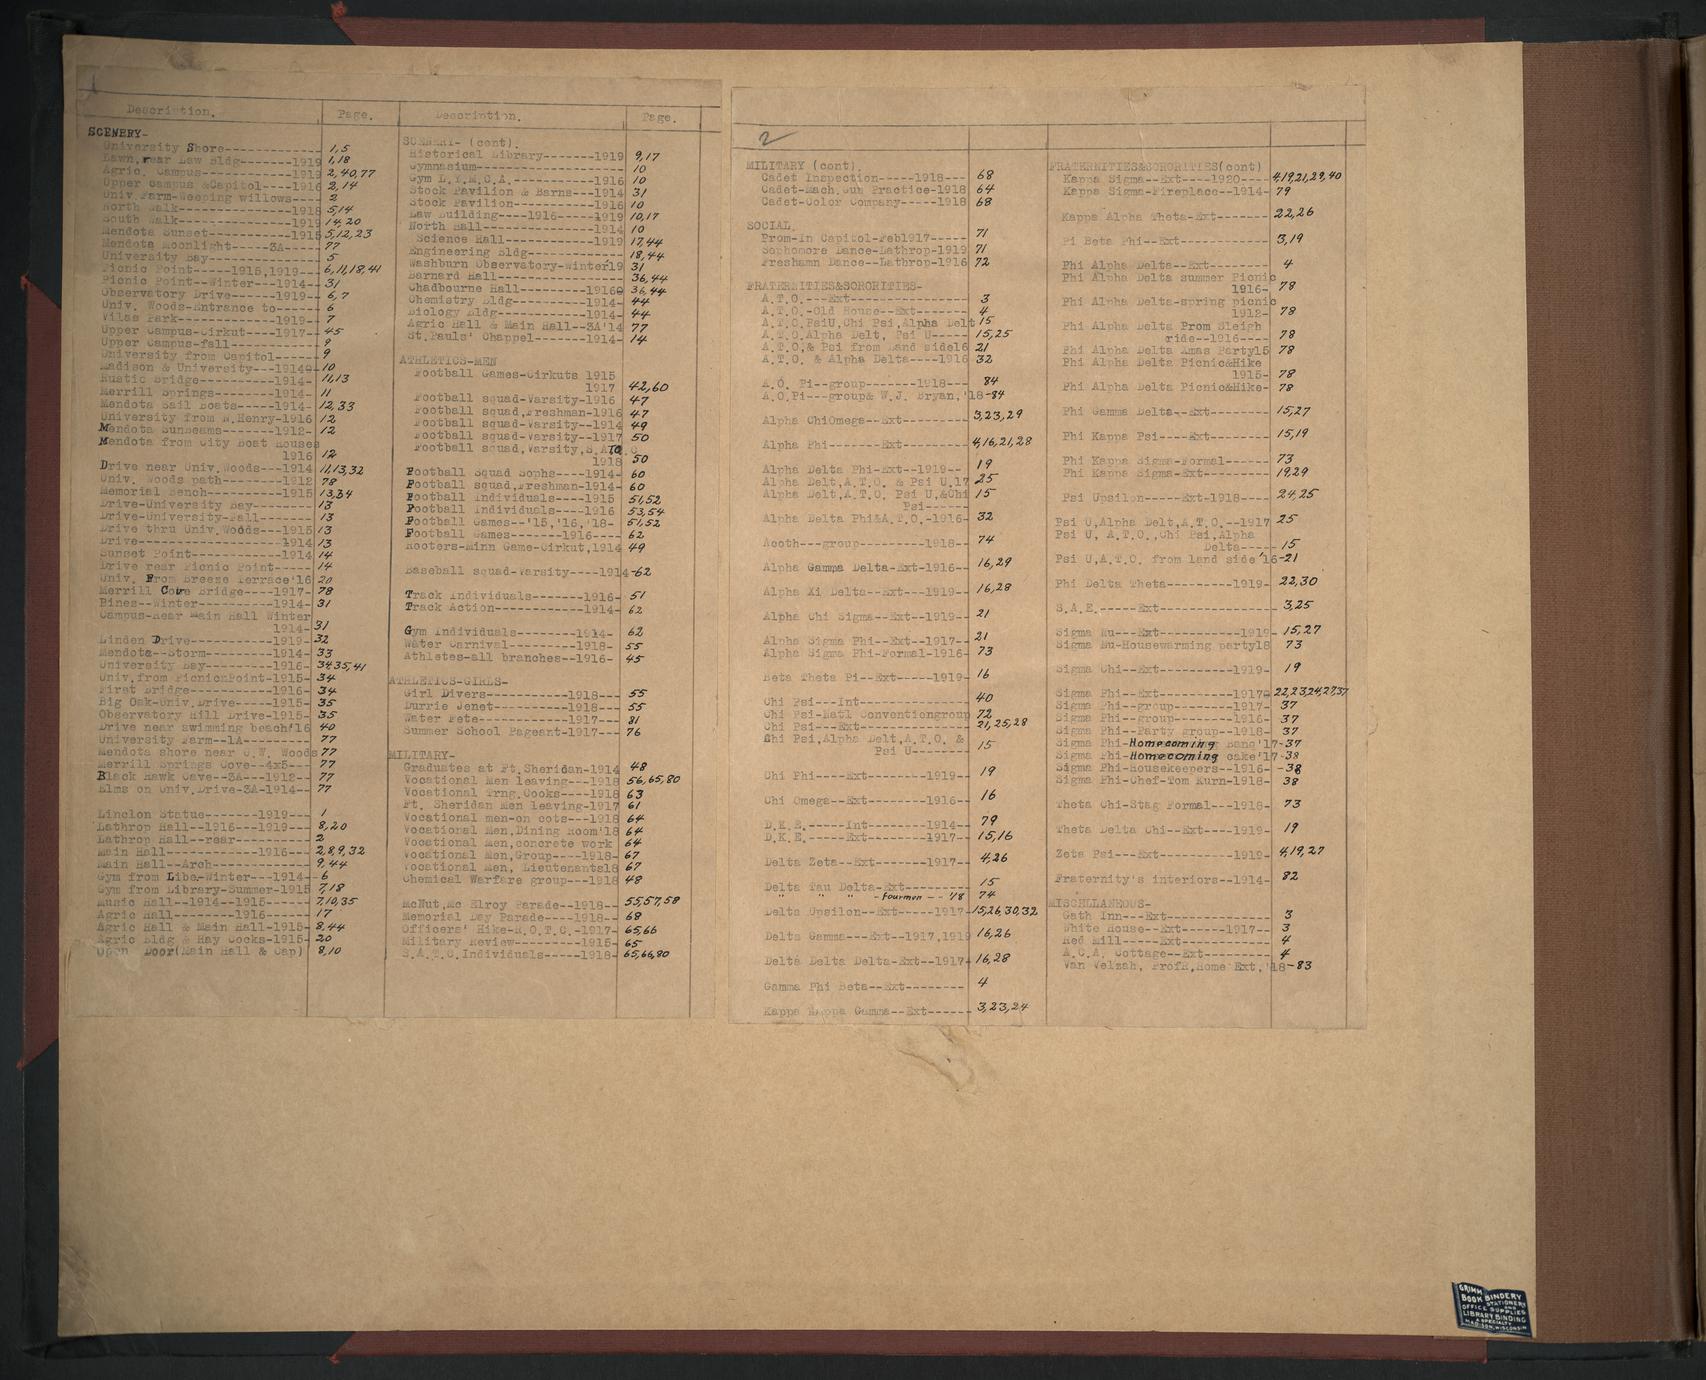 1
Description. Page.
SCENERY-
University Shore------------- 1,5
Lawn,rear Law Bldg-------1919 1,18
Agric. Campus------------1919 2,40,77
Upper Campus &Capitol----1916 2,14
Univ.Farm-Weeping willows---- 2
North Walk---------------1918 5,14
South Walk---------------1919 14,20
Mendota Sunset-----------1915 5,12,23
Mendota Moonlight-----3A---- 77
University Bay-------------- 5
Picnic Point-----1915,1919--- 6,11,18,41
Picnic Point--Winter---1914-- 31
Observatory Drive----1919-- 6,7
Univ. Woods-Entrance to----- 6
Vilas Park----------1919-- 7
Upper Campus-Cirkut---1917-- 45
Upper Campus-fall---------- 9
University from Capitol----- 9
Madison & University---1914- 10
Rustic Bridge--------1914- 11,13
Merrill Springs------1914- 11
Mendota Sail Boats----1914- 12,33
University from N.Henry-1916 12
Mendota Sunbeams-------1912- 12
Mendota from City Boat House
1916 12
Drive near Univ.Woods---1914 11,13,32
Univ. Woods path-------1912 78
Memorial Bench------1915 13,34
Drive-University Bay------- 13
Drive-University-Fall------ 13
Drive thru Univ.Woods---1915 13
Drive-----------------1914 13
Sunset Point-----------1914 14
Drive near Picnic Point----- 14
Univ. From Breeze Terrace'16 20
Merrill Cove Bridge----1917- 78
Pines--Winter--------1914- 31
Campus-Rear Main Hall Winter
1914- 31
Linden Drive----------1919- 32
Mendota--Storm-------1914- 33
University Bay--------1916- 34,35,41
Univ.from PicnicPoint-1915- 34
First Bridge----------1916- 34
Big Oak-Univ.Drive----1915- 35
Observatory Hill Drive-1915- 35
Drive near swimming beach'16 40
University Farm--1A------- 77
Mendota shore near U.W. Woods 77
Merrill Springs Cove--4x5--- 77
Black Hawk Cave--3A---1912-- 77
Elms on Univ.Drive-3A-1914-- 77
Linclon Statue-------1919--- 1
Lathrop Hall--1916---1919--- 8,20
Lathrop Hall--rear--------- 2
Main Hall-----------1916--- 2,8,9,32
Main Hall--Arch------------ 9,44
Gym from Libe-Winter---1914-- 6
Gym from Library-Summer-1915 7,18
Music Hall--1914--1915----- 7,10,35
Agric Hall----------1916--- 17
Agric Hall & Main Hall--1915- 8,44
Agric Bldg & Hay Cocks--1915- 20
Open Door(Main Hall & Cap) 8,10
Description. Page.
SCENERY- (cont).
Historical Library-------1919 9,17
Gymnasium------------------ 10
Gym L.Y.M.C.A.----------1916 10
Stock Pavilion & Barns---1914 31
Stock Pavilion-----------1916 10
Law Building----1916-----1919 10,17
North Hall---------------1914 10
Science Hall-----------1919 17,44
Engineering Bldg----------- 18,44
Washburn Observatory-Winter19 31
Barnard Hall--------------- 36,44
Chadbourne Hall--------1916 36,44
Chemistry Bldg--------1914- 44
Biology Bldg----------1914- 44
Agric Hall & Main Hall--3A'14 77
St.Pauls' Chapel-------1914- 14
ATHLETICS-MEN
Football Games-Cirkuts 1915
1917 42,60
Football squad-Varsity-1916 47
Football squad,Freshman-1916 47
Football squad-Varsity--1914 49
Football squad-Varsity--1917 50
Football squad,Varsity,S.A.T.C
1918 50
Football Squad Sophs---1914- 60
Football squad,Freshman-1914- 60
Football Individuals----1915 51,52
Football Individuals----1916 53,54
Football Games--'15,'16,'18- 51,52
Football Games------1916--- 62
Rooters-Minn Game-Cirkut,1914 49
Baseball squad-Varsity---1914 -62
Track Individuals------1916- 51
Track Action-----------1914- 62
Gym Individuals--------1914- 62
Water Carnival---------1918- 55
Athletes-all branches--1916- 45
ATHLETICS-GIRLS-
Girl Divers----------1918--- 55
Durrie Jenet---------1918--- 55
Water Fete-----------1917--- 81
Summer School Pageant-1917--- 76
MILITARY-
Graduates at Ft.Sheridan-1914 48
Vocational Men leaving---1918 56,65,80
Vocational Trng.Cooks----1918 63
Ft. Sheridan Men leaving-1917 61
Vocational men-on cots---1918 64
Vocational Men,Dining Room'18 64
Vocational Men,concrete work 64
Vocational Men,Group----1918- 67
Vocational Men, Lieutenants18 67
Chemical Warfare group---1918 48
McNut,Mc Elroy Parade--1918-- 55,57,58
Memorial Day Parade----1918-- 68
Officers' Hike-R.O.T.C.-1917- 65,66
Military Review--------1915- 65
S.A.T.C.Individuals-----1918- 65,66,80
2
MILITARY (cont)
Cadet Inspection-----1918--- 68
Cadet-Mach.Gun Practice-1918 64
Cadet-Color Company-----1918 68
SOCIAL.
Prom-In Capitol-Feb1917----- 71
Sophomore Dance-Lathrop-1919 71
Freshamn Dance--Lathrop-1916 72
FRATERNITIES&SORORITIES-
A.T.O.---Ext--------------- 3
A.T.O.-Old House--Ext------ 4
A.T.O.PsiU,Chi Psi,Alpha Delt 15
A.T.O.Alpha Delt, Psi U----- 15,25
A.T.O.& Psi from Land side16 21
A.T.O. & Alpha Delta----1916 32
A.O. Pi--group-------1918--- 84
A.O.Pi---group& W.J. Bryan,'18-84
Alpha ChiOmega--Ext-------- 3,23,29
Alpha Phi------Ext-------- 4,16,21,28
Alpha Delta Phi-Ext--1919-- 19
Alpha Delt,A.T.O. & Psi U.17 25
Alpha Delt,A.T.O. Psi U,&Chi 15
Psi-----
Alpha Delta Phi&A.T.O.-1916- 32
Acoth---group--------1918-- 74
Alpha Gamma Delta-Ext-1916-- 16,29
Alpha Xi Delta--Ext--1919-- 16,28
Alpha Chi Sigma--Ext--1919-- 21
Alpha Sigma Phi--Ext--1917-- 21
Alpha Sigma Phi-Formal-1916- 73
Beta Theta Pi--Ext----1919- 16
Chi Psi---Int------------- 40
Chi Psi-Natl Conventiongroup 72
Chi Psi---Ext------------- 21,25,28
Chi Psi,Alpha Delt,A.T.O. &
Psi U------- 15
Chi Phi----Ext------1919--- 19
Chi Omega--Ext------1916--- 16
D.K.E.-----Int------1914--- 79
D.K.E.-----Ext------1917--- 15,16
Delta Zeta--Ext------1917-- 4,26
Delta Tau Delta-Ext-------- 15
" " " -Fourmen -- '18 74
Delta Upsilon--Ext-----1917 15,26,30,32
Delta Gamma---Ext--1917,1919 16,26
Delta Delta Delta-Ext--1917 16,28
Gamma Phi Beta--Ext-------- 4
Kappa Kappa Gamma--Ext----- 3,23,24
FRATERNITIES&SORORITIES(cont)
Kappa Sigma--Ext----1920---- 4,19,21,29,40
Kappa Sigma-Fireplace--1914- 79
Kappa Alpha Theta-Ext------- 22,26
Pi Beta Phi--Ext----------- 3,19
Phi Alpha Delta--Ext------- 4
Phi Alpha Delta summer Picnic
1916- 78
Phi Alpha Delta-spring picnic
1912- 78
Phi Alpha Delta Prom Sleigh
ride--1916---- 78
Phi Alpha Delta Xmas Party15 78
Phi Alpha Delta Picnic&Hike
1915- 78
Phi Alpha Delta Picnic&Hike- 78
Phi Gamma Delta--Ext------- 15,27
Phi Kappa Psi----Ext------- 15,19
Phi Kappa Sigma-Formal----- 73
Phi Kappa Sigma-Ext-------- 19,29
Psi Upsilon-----Ext-1918---- 24,25
Psi U,Alpha Delt,A.T.O.--1917 25
Psi U, A.T.O.,Chi Psi,Alpha
Delta---- 15
Psi U,A.T.O. from land side'16-21
Phi Delta Theta------1919- 22,30
S.A.E.-----Ext------------- 3,25
Sigma Nu---Ext--------1919- 15,27
Sigma Nu-Housewarming party18 73
Sigma Chi--Ext-------1919- 19
Sigma Phi--Ext-------1917 22,23,24,27,37
Sigma Phi--group-----1917- 37
Sigma Phi--group-----1916- 37
Sigma Phi--Party group--1918- 37
Sigma Phi-Homecoming Bang'17-37
Sigma Phi-Homecoming cake'17-38
Sigma Phi-Housekeepers--1916- 38
Sigma Phi-Chef-Tom Kurn-1918- 38
Theta Chi-Stag Formal---1918- 73
Theta Delta Chi--Ext---1919- 19
Zeta Psi---Ext--------1919- 4,19,27
Fraternity's interiors--1914- 82
MISCHLLANEOUS-
Gath Inn---Ext------------- 3
White House--Ext------1917-- 3
Red Mill-----Ext----------- 4
A.C.A. Cottage--Ext-------- 4
Van Velzah, ProfR,Home Ext,'18-83
GRIMM
BOOK BINDERY
STATIONERY
OFFICE SUPPLIES
AND
LIBRARY BINDING
A SPECIALTY
MADISON,WISCONSIN